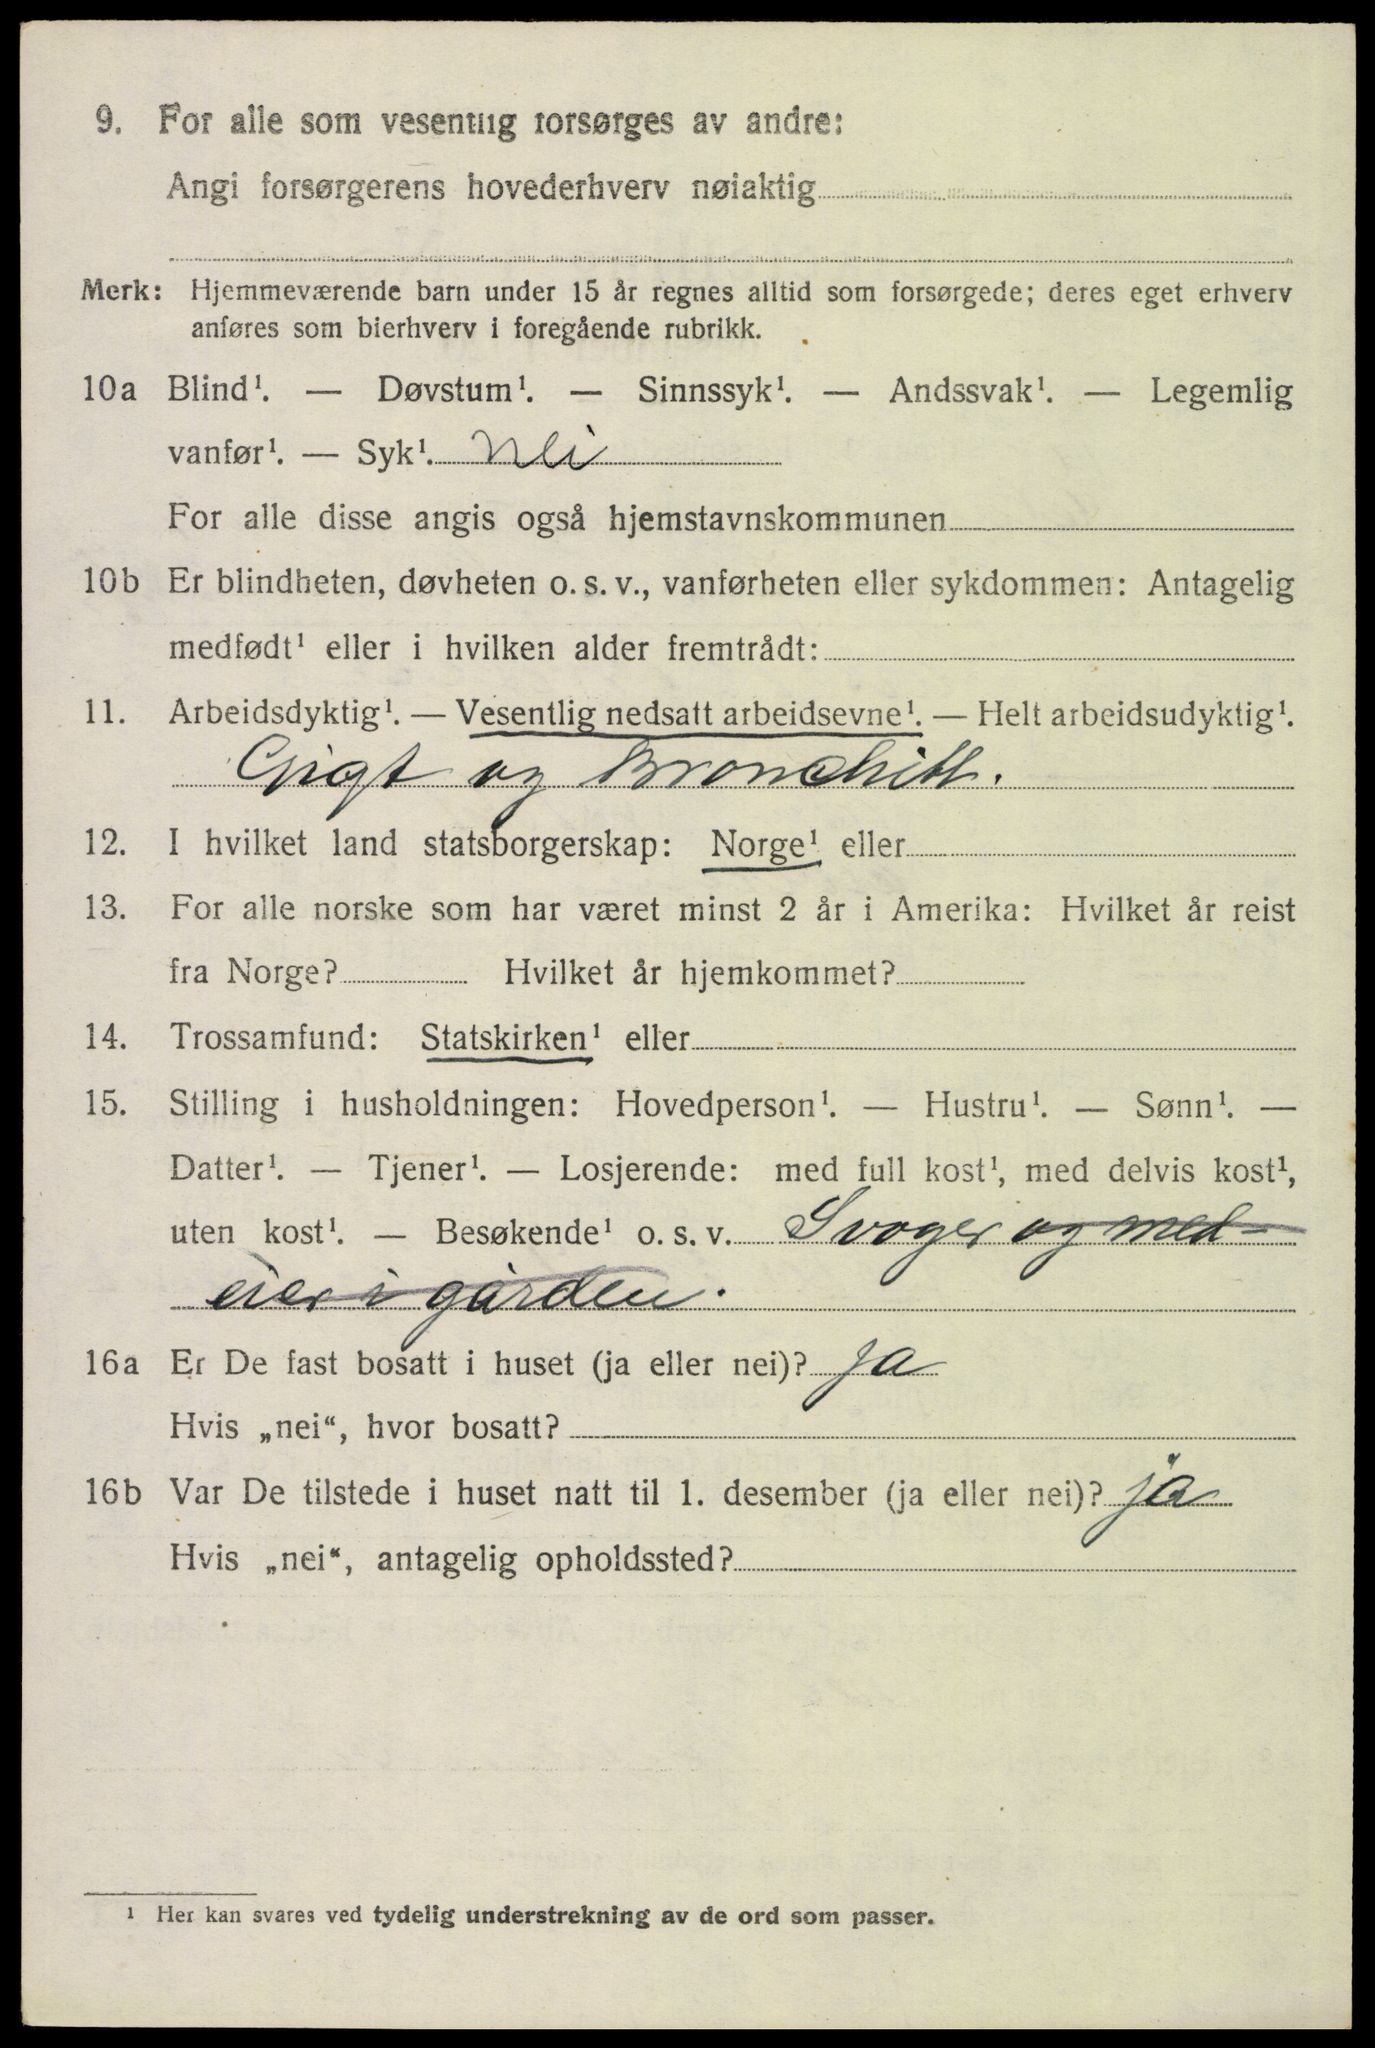 9. For alle som vesentlig forsørges av andre:
Angi forsørgerens hovederhverv nøiaktig
Merk: Hjemmeværende barn under 15 år regnes alltid som forsørgede; deres eget erhverv
anføres som bierhverv i foregående rubrikk.
10a Blind¹. — Døvstum¹. — Sinnssyk¹. — Andssvak¹. — Legemlig
vanfør¹. — Syk¹. Nei
For alle disse angis også hjemstavnskommunen
10b Er blindheten, døvheten o. s. v., vanførheten eller sykdommen: Antagelig
medfødt¹ eller i hvilken alder fremtrådt:
11. Arbeidsdyktig¹. — Vesentlig nedsatt arbeidsevne¹. — Helt arbeidsudyktig¹.
Gigt og Bronchitt.
12. I hvilket land statsborgerskap: Norge¹ eller
13. For alle norske som har været minst 2 år i Amerika: Hvilket år reist
fra Norge? Hvilket år hjemkommet?
14. Trossamfund: Statskirken¹ eller
15. Stilling i husholdningen: Hovedperson¹. — Hustru¹. — Sønn¹. —
Datter¹. — Tjener¹. — Losjerende: med full kost¹, med delvis kost¹,
uten kost¹. — Besøkende¹ o. s. v. Svoger og med-
eier i gården.
16a Er De fast bosatt i huset (ja eller nei)? ja
Hvis „nei“, hvor bosatt?
16b Var De tilstede i huset natt til 1. desember (ja eller nei)? ja
Hvis „nei“, antagelig opholdssted?
¹ Her kan svares ved tydelig understrekning av de ord som passer.